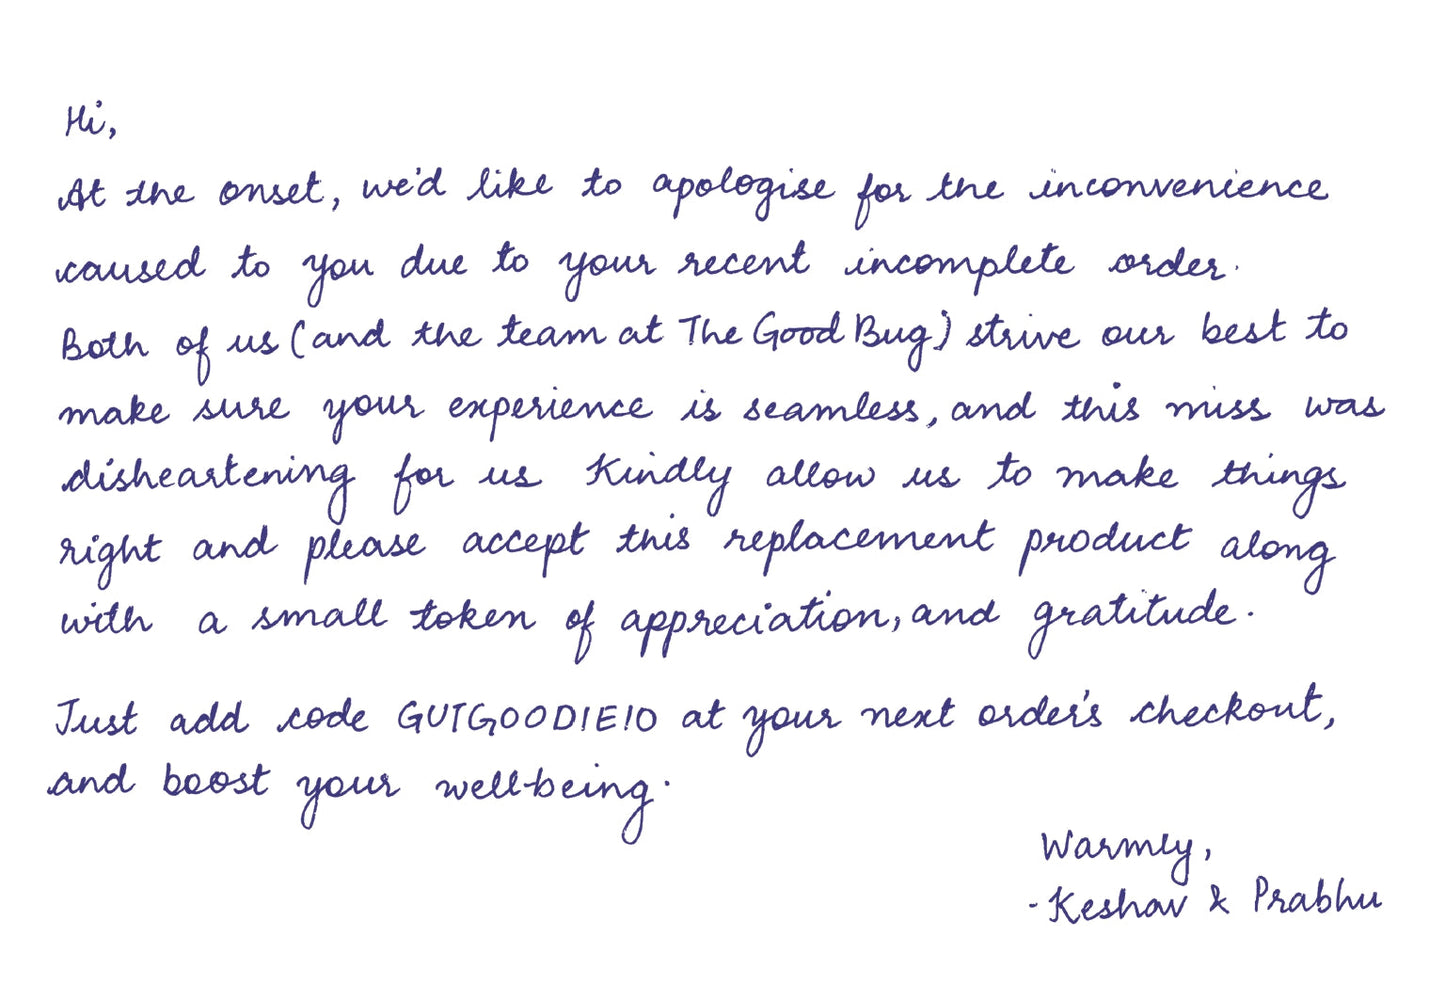 Hi,
At the onset, we'd like to apologise for the inconvenience
caused to you due to your recent incomplete order.
Both of us (and the team at The Good Bug) strive our best to
make sure your experience is seamless, and this miss was
disheartening for us Kindly allow us to make things
right and please accept this replacement product along
with a small token of appreciation, and gratitude.
Just add code GUTGOODIE10 at your next order's checkout,
and boost your well-being.
Warmly,
- Keshav & Prabhu